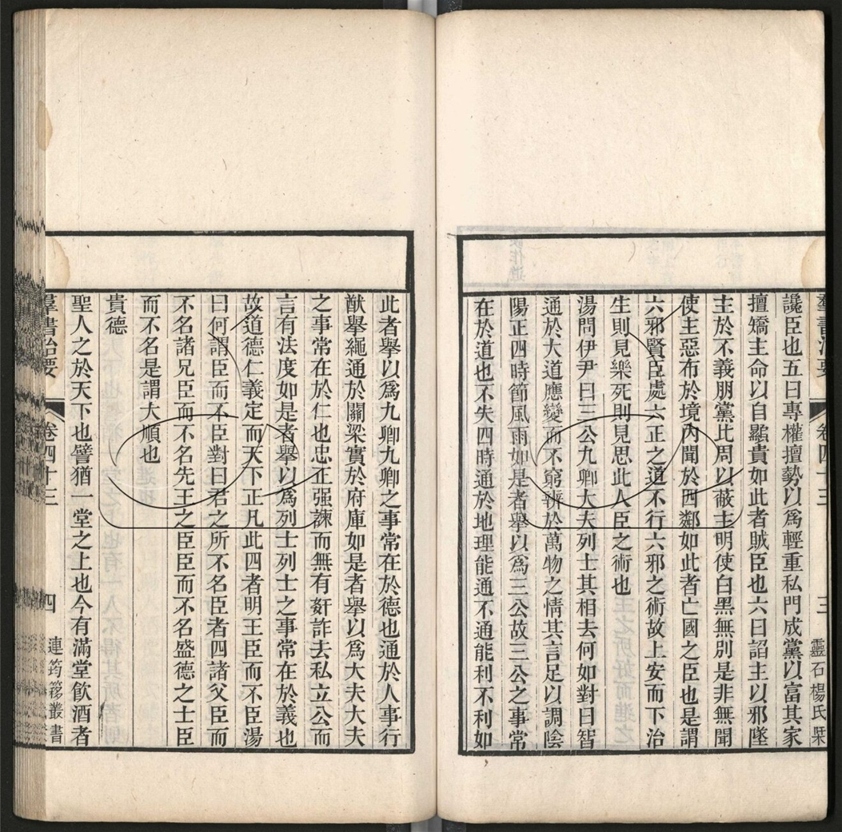 羣書治要 卷四十三 三 靈石楊氏栞
讒臣也五曰專權擅勢以爲輕重私門成黨以富其家
擅矯主命以自顯貴如此者賊臣也六曰諂主以邪墜
主於不義朋黨比周以蔽主明使白黑無別是非無聞
使主惡布於境內聞於四鄰如此者亡國之臣也是謂
六邪賢臣處六正之道不行六邪之術故上安而下治
生則見樂死則見思此人臣之術也
湯問伊尹曰三公九卿大夫列士其相去何如對曰智
通於大道應變而不窮辨於萬物之情其言足以調陰
陽正四時節風雨如是者舉以爲三公故三公之事常
在於道也不失四時通於地理能通不通能利不利如
此者舉以爲九卿九卿之事常在於德也通於人事行
猷舉繩通於關梁實於府庫如是者舉以爲大夫大夫
之事常在於仁也忠正强諫而無有姧詐去私立公而
言有法度如是者舉以爲列士列士之事常在於義也
故道德仁義定而天下正凡此四者明王臣而不臣湯
曰何謂臣而不臣對曰君之所不名臣者四諸父臣而
不名諸兄臣而不名先王之臣臣而不名盛德之士臣
而不名是謂大順也
貴德
聖人之於天下也譬猶一堂之上也今有滿堂飲酒者
羣書治要 卷四十三 四 連筠簃叢書